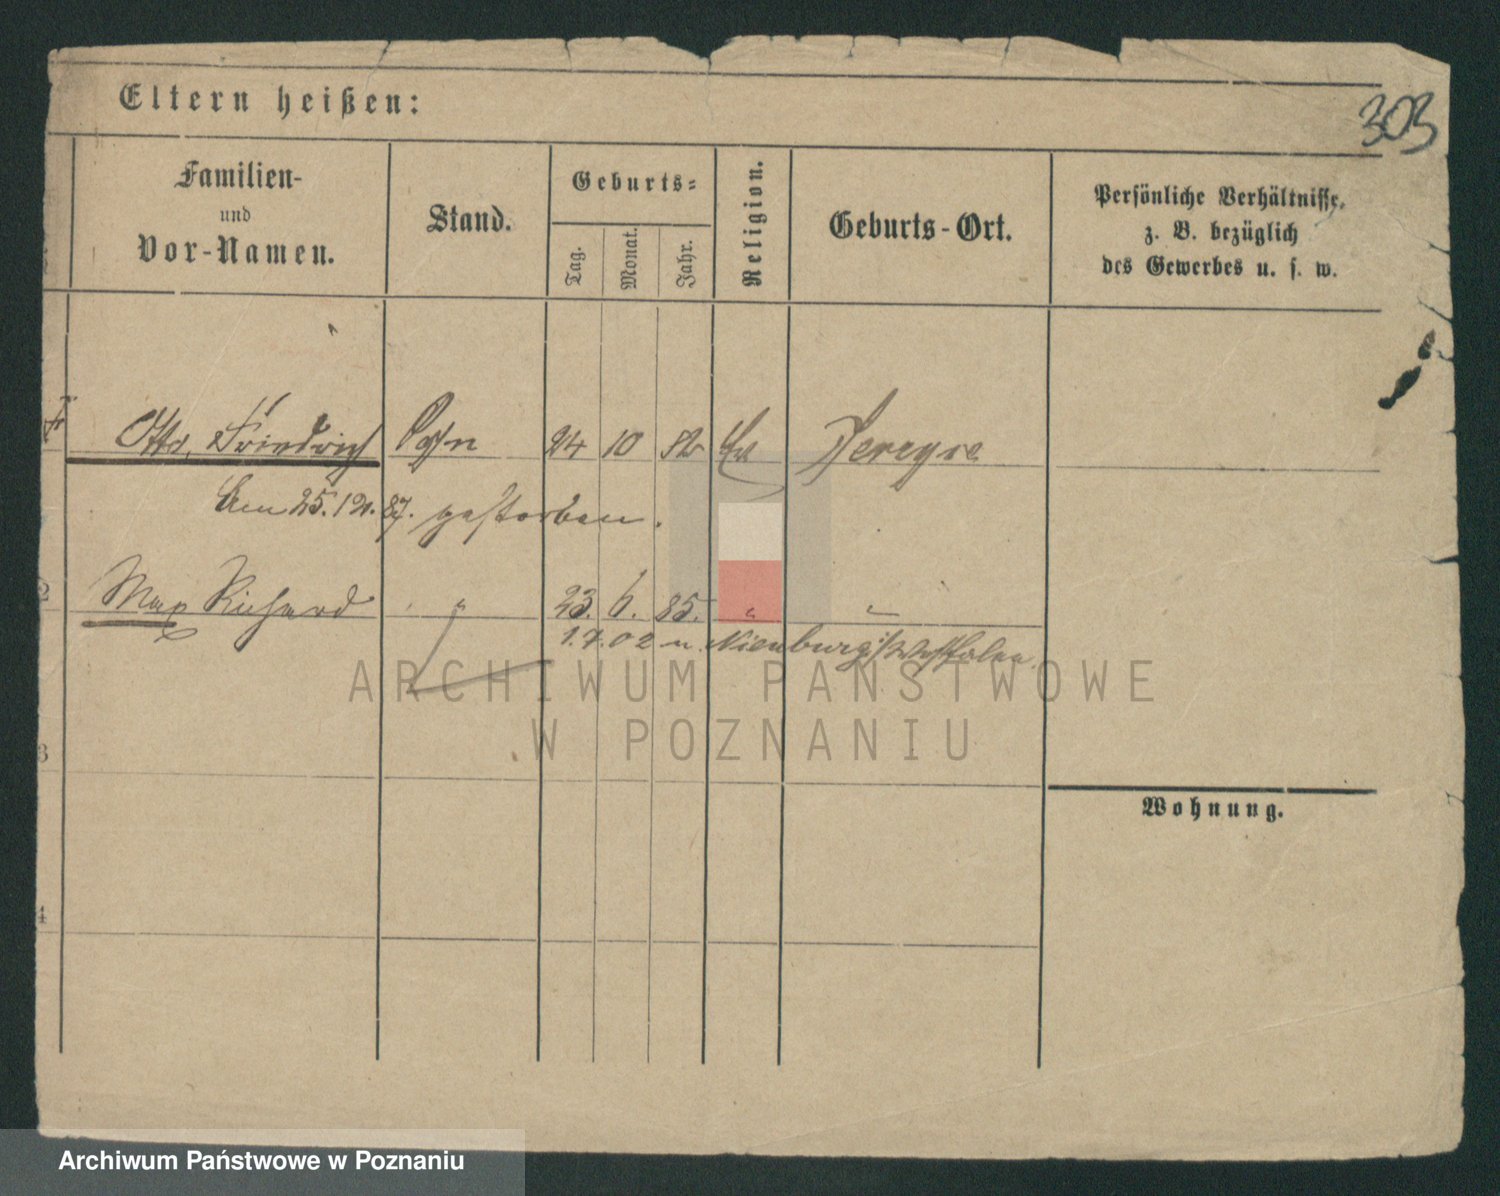 303
Eltern heißen:
Familien-
und
Vor-Namen.
Stand.
Geburts-
Tag.
Monat.
Jahr.
Religion.
Geburts-Ort.
Persönliche Verhältnisse,
z. B. bezüglich
des Gewerbes u. s. w.
Otto, Friedrich Sohn 24 10 82 Ev
Am 25.12.87. gestorben.
2 Max Richard " 23. 6. 85. " "
1.7.02 n. Nienburg i/Westfalen
3
Wohnung.
4
ARCHIWUM PAŃSTWOWE
W POZNANIU
Archiwum Państwowe w Poznaniu